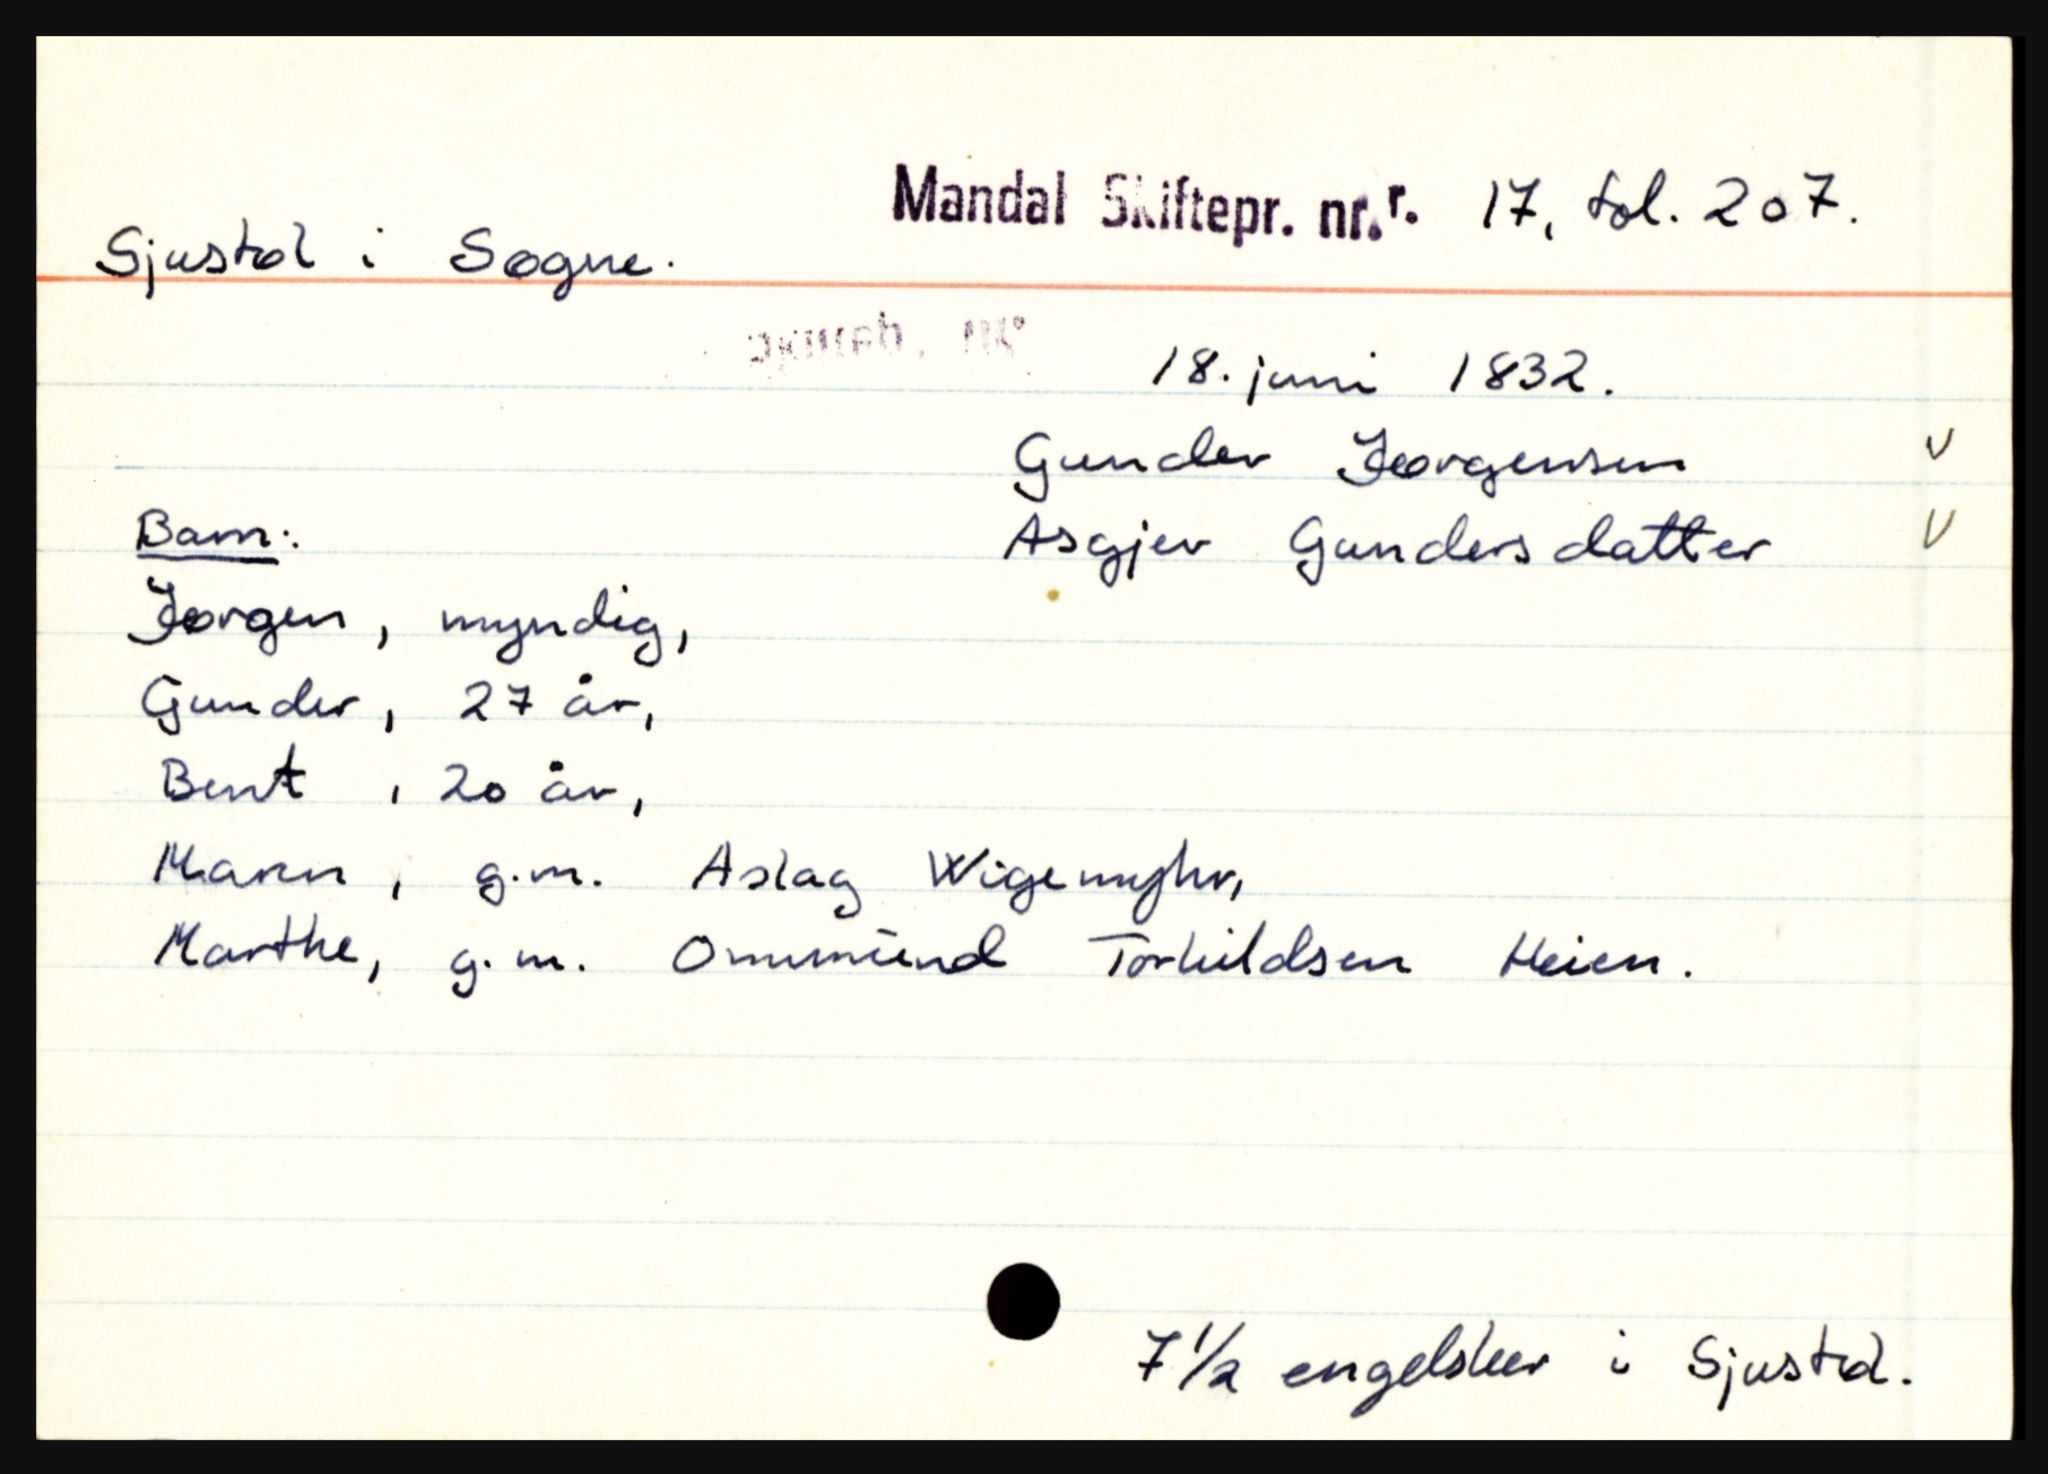 Mandal Skiftepr. nr. r. 17, fol. 207.
Sjustøl i Søgne.
18. juni 1832.
Gunder Jørgensen v
Asgjer Gundersdatter v
Barn:
Jørgen, myndig,
Gunder, 27 år,
Bent, 20 år,
Maren, g.m. Aslag Wigemyhr,
Marthe, g.m. Ommund Torkildsen Heien.
7 1/2 engelsker i Sjustøl.